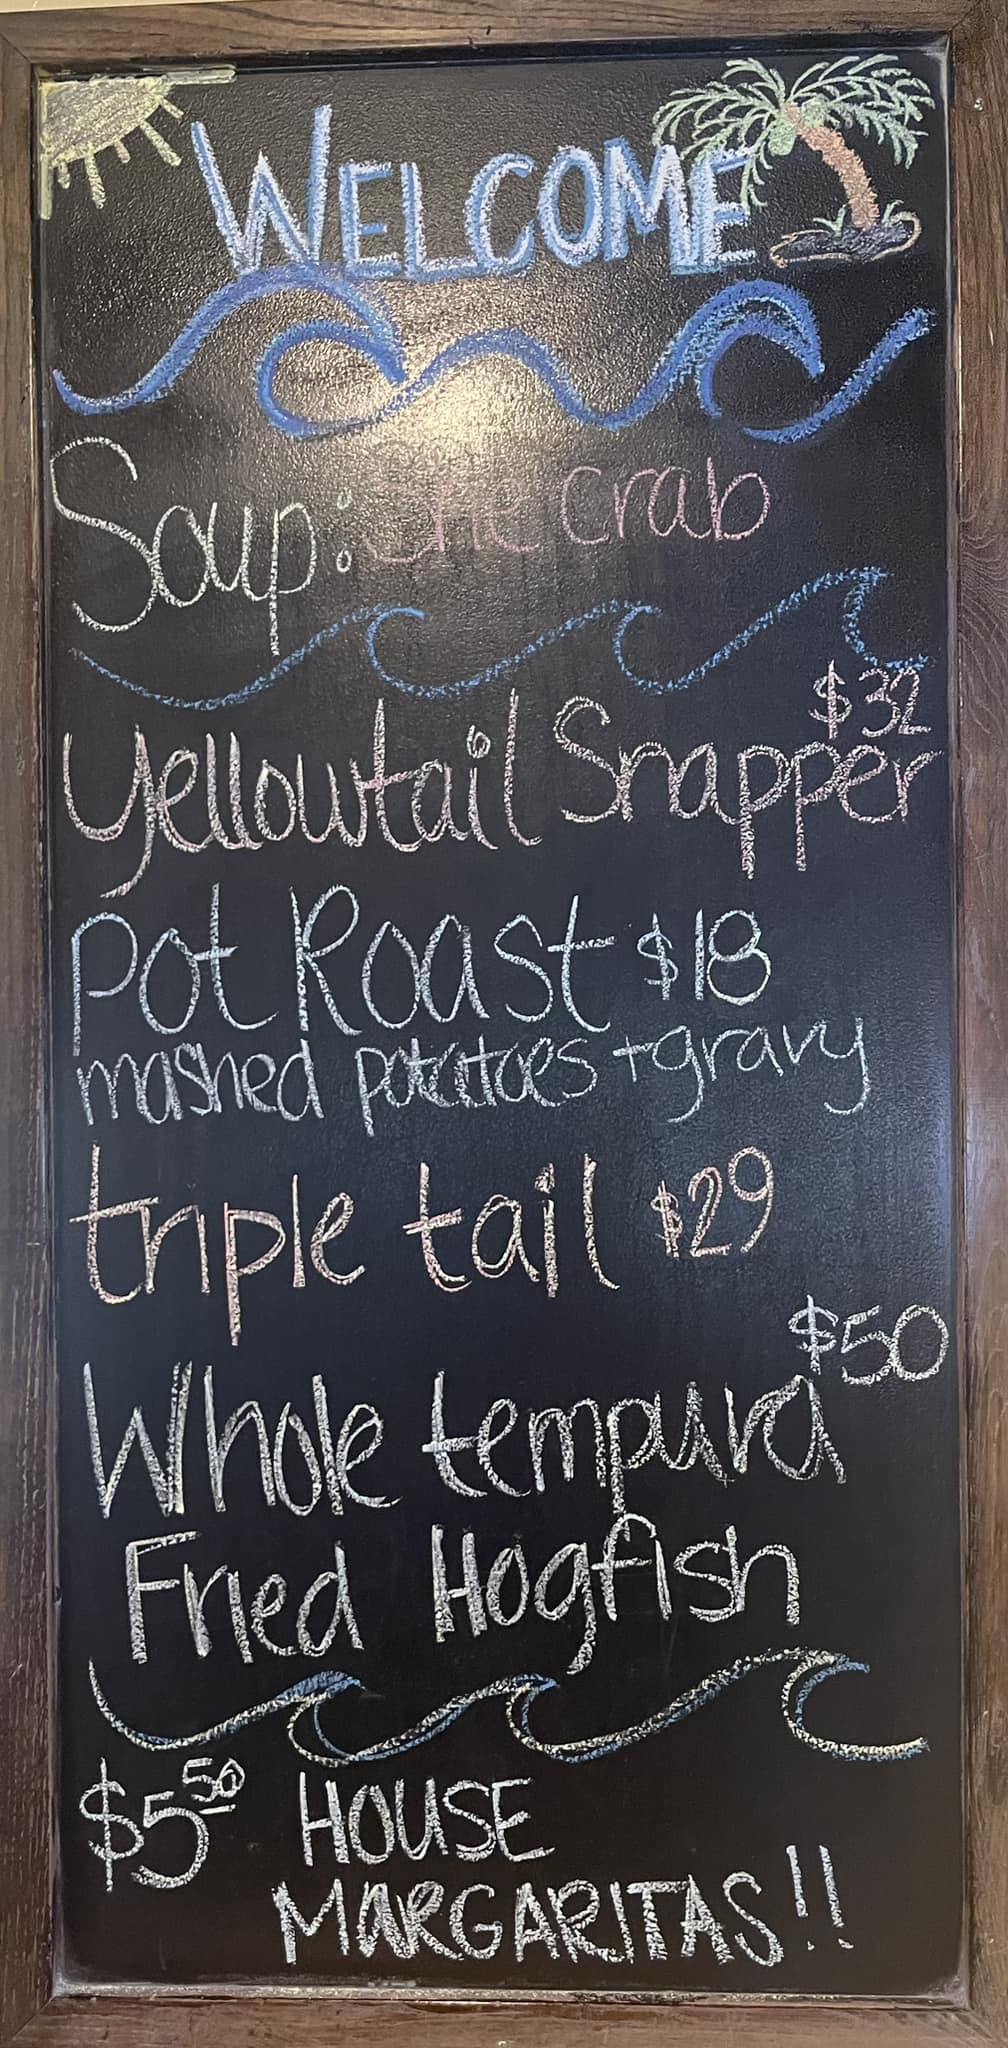 WELCOME
Soup: She Crab
$32
Yellowtail Snapper
Pot Roast $18
mashed potatoes + gravy
triple tail $29
$50
Whole tempura
Fried Hogfish
$5.50 HOUSE
MARGARITAS!!